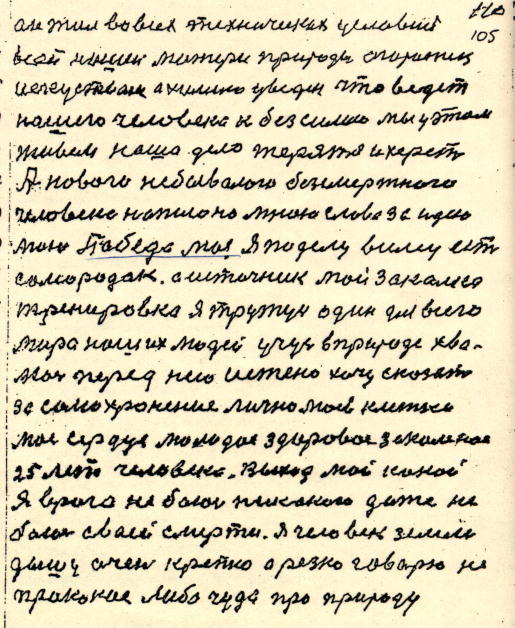 110
105
он жил во всех технических условий
всей нашей матери природы
искуствам а химию уведен что ведет
нашего человека к безсилию мы у этом
живем наша дело терятя и хереть
А нового небывалого безсмертного
человека на
мою Победа моя Я по делу вижу есть
самородак. а источник мой Закалка
тренировка Я тружуся один для всего
мира наших людей учуся в природе хва-
люся перед нею истено хочу сказать
за самохронение лично моей клетке
мое сердце молодое здоровое закаленое
25 лет человека. Выход мой какой
Я врага не боюся некакого даже не
боюся своей смерти. Я человек земли
дышу очен крепко а резко говарю не
прококое либо чуда про природу